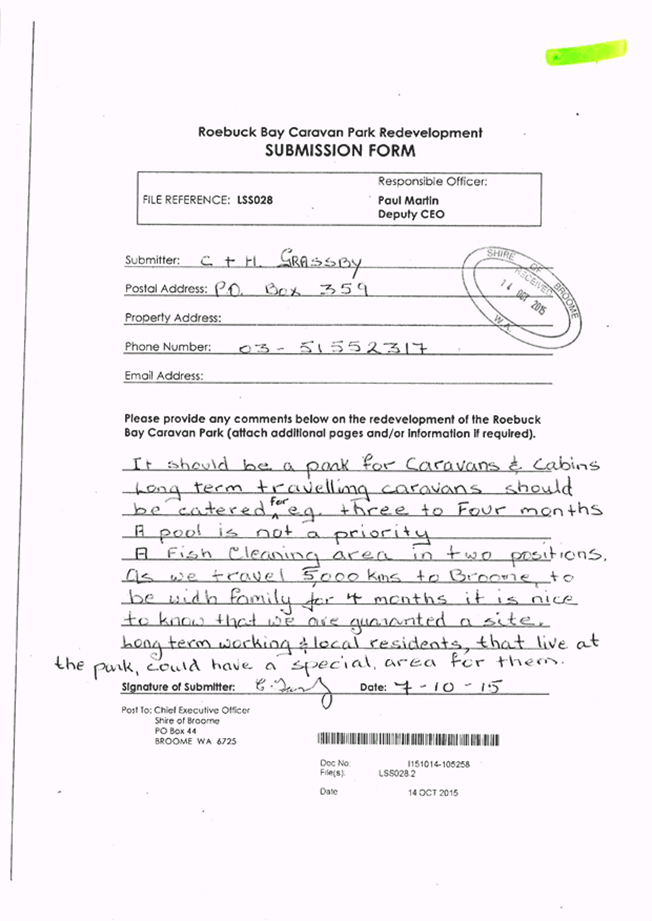 Roebuck Bay Caravan Park Redevelopment
SUBMISSION FORM
Responsible Officer:
FILE REFERENCE: LSS028
Paul Martin
Deputy CEO
Submitter: C + H. GRASSBY
Postal Address: P.O. Box 359
SHIRE OF BROOME
RECEIVED
14 OCT 2015
W.A.
Property Address:
Phone Number: 03 - 51552317
Email Address:
Please provide any comments below on the redevelopment of the Roebuck
Bay Caravan Park (attach additional pages and/or information if required).
It should be a park for Caravans & Cabins
Long term travelling caravans should
be catered for e.g. three to Four months
A pool is not a priority
A Fish Cleaning area in two positions.
As we travel 5,000 kms to Broome, to
be widh family for 4 months it is nice
to know that we are guaranted a site.
Long term working & local residents, that live at
the park, could have a special, area for them.
Signature of Submitter: Date: 7-10-15
Post To: Chief Executive Officer
Shire of Broome
PO Box 44
BROOME WA 6725
Doc No: I151014-105258
File(s): LSS028.2
Date 14 OCT 2015